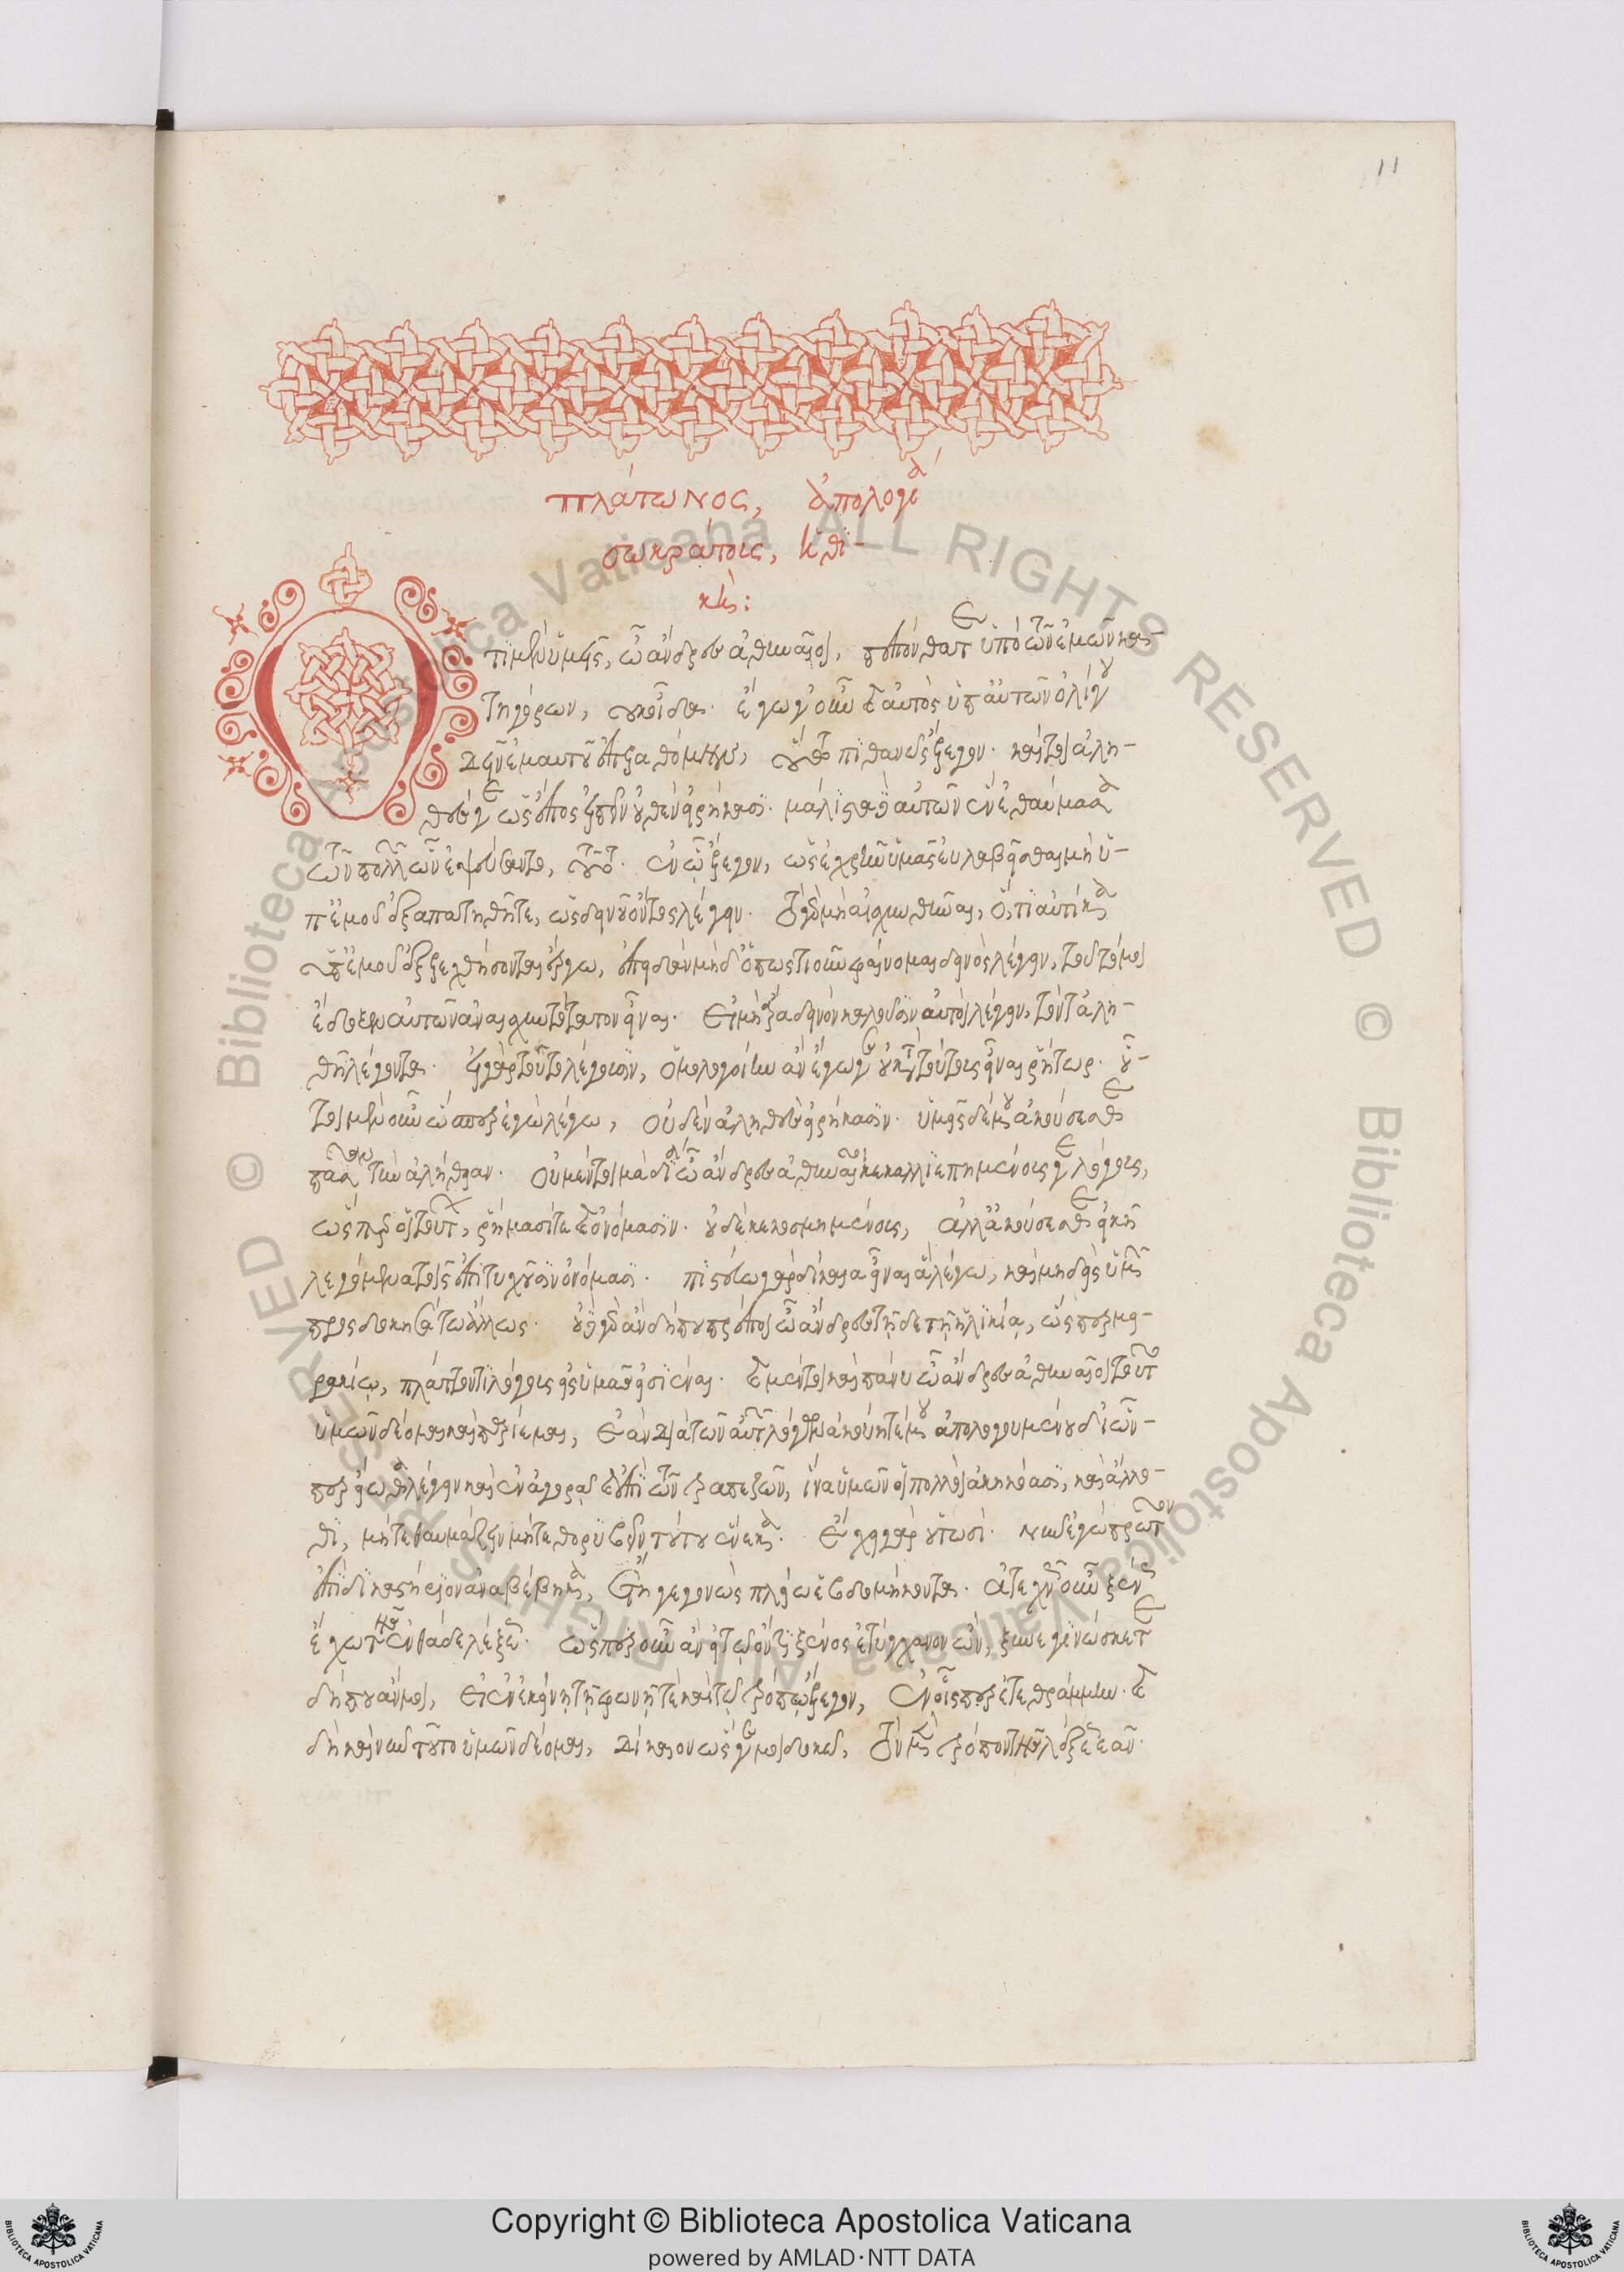 11
πλάτωνος, ἀπολογία
σωκράτους, ἠθι-
κὴ:
Ὅτι μὲν ὑμεῖς, ὦ ἄνδρες ἀθηναῖοι, πεπόνθατε ὑπὸ τῶν ἐμῶν κα-
τηγόρων, οὐκ οἶδα. ἐγὼ γ' οὖν καὶ αὐτὸς ὑπ' αὐτῶν ὀλίγου
δεῖν ἐμαυτοῦ ἐπελαθόμην, οὕτω πιθανῶς ἔλεγον. καί τοι ἀλη-
θές γε ὡς ἔπος εἰπεῖν οὐθὲν εἰρήκασι. μάλιστα δ' αὐτῶν ἓν ἐθαύμασα
τῶν πολλῶν ὧν ἐψεύσαντο, τοῦτο. ἐν ᾧ ἔλεγον, ὡς ἐχρῆν ὑμᾶς εὐλαβεῖσθαι μὴ ὑ-
π' ἐμοῦ ἐξαπατηθῆτε, ὡς δεινοῦ ὄντος λέγειν. τὸ γὰρ μὴ αἰσχυνθῆναι, ὅτι αὐτίκα
ὑπ' ἐμοῦ ἐξελεγχθήσονται ἔργω, ἐπειδὰν μηδ' ὁπωστιοῦν φαίνομαι δεινὸς λέγειν, τοῦτό μοι
ἔδοξεν αὐτῶν ἀναισχυντότατον εἶναι. εἰ μὴ ἄρα δεινὸν καλοῦσιν αὐτοὶ λέγειν, τὸν τἀλη-
θῆ λέγοντα. εἰ γὰρ τοῦτο λέγουσιν, ὁμολογοίην ἂν ἔγωγε οὐ κατὰ τούτους εἶναι ῥήτωρ. οὗ-
τοι μὲν οὖν ὥσπερ ἐγὼ λέγω, οὐδὲν ἀληθὲς εἰρήκασιν. ὑμεῖς δέ μου ἀκούσεσθε
πᾶσαν τὴν ἀλήθειαν. οὐ μέντοι μὰ δί' ὦ ἄνδρες ἀθηναῖοι κεκαλλιεπημένους γε λόγους,
ὥσπερ οἱ τούτων, ῥήμασί τε καὶ ὀνόμασιν. οὐδὲ κεκοσμημένους, ἀλλ' ἀκούσεσθε εἰκῆ
λεγόμενα τοῖς ἐπιτυχοῦσιν ὀνόμασι. πιστεύω γὰρ δίκαια εἶναι ἃ λέγω, καὶ μηδεὶς ὑμῶν
προσδοκησάτω ἄλλως. οὐδὲ γὰρ ἂν δήπου πρέποι ὦ ἄνδρες τῇδε τῇ ἡλικίᾳ, ὥσπερ μει-
ρακίῳ, πλάττοντι λόγους εἰς ὑμᾶς εἰσιέναι. καὶ μέντοι καὶ πάνυ ὦ ἄνδρες ἀθηναῖοι τοῦτο
ὑμῶν δέομαι καὶ παρίεμαι, ἐὰν διὰ τῶν αὐτῶν λόγων ἀκούητέ μου ἀπολογουμένου δι' ὧν-
περ εἴωθα λέγειν καὶ ἐν ἀγορᾷ καὶ ἐπὶ τῶν τραπεζῶν, ἵνα ὑμῶν οἱ πολλοὶ ἀκηκόασι, καὶ ἄλλο-
θι, μήτε θαυμάζειν μήτε θορυβεῖν τούτου ἕνεκα. ἔχει γὰρ οὑτωσί. νῦν ἐγὼ πρῶτον
ἐπὶ δικαστήριον ἀναβέβηκα, ἔτη γεγονὼς πλείω ἑβδομήκοντα. ἀτεχνῶς οὖν ξένως
ἔχω τῆς ἐνθάδε λέξεως. ὥσπερ οὖν ἂν εἰ τῷ ὄντι ξένος ἐτύγχανον ὤν, ξυνεγινώσκετε
δήπου ἄν μοι, εἰ ἐν ἐκείνῃ τῇ φωνῇ τε καὶ τῷ τρόπῳ ἔλεγον, ἐν οἷσπερ ἐτεθράμμην. καὶ
δὴ καὶ νῦν τοῦτο ὑμῶν δέομαι, δίκαιον ὥς γε μοι δοκεῖ, τὸν μὲν τρόπον τῆς λέξεως ἐᾶν.
Copyright © Biblioteca Apostolica Vaticana
powered by AMLAD·NTT DATA